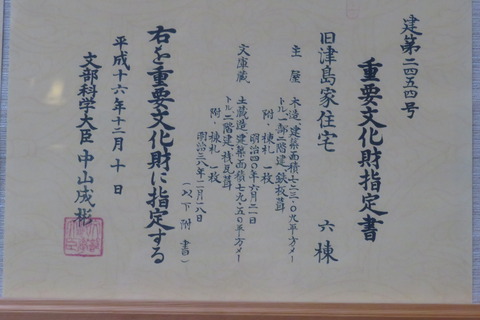 建第二四五四号
重要文化財指定書
旧津島家住宅 六棟
主屋 木造、建築面積七二三・〇九平方メー
トル、一部二階建、鉄板葺
附・棟札 一枚
明治四〇年六月二一日
文庫蔵 土蔵造、建築面積七九・五〇平方メー
トル、二階建、桟瓦葺
附・棟札 一枚
明治三八年一二月一八日
(以下附書)
右を重要文化財に指定する
平成十六年十二月十日
文部科学大臣 中山成彬